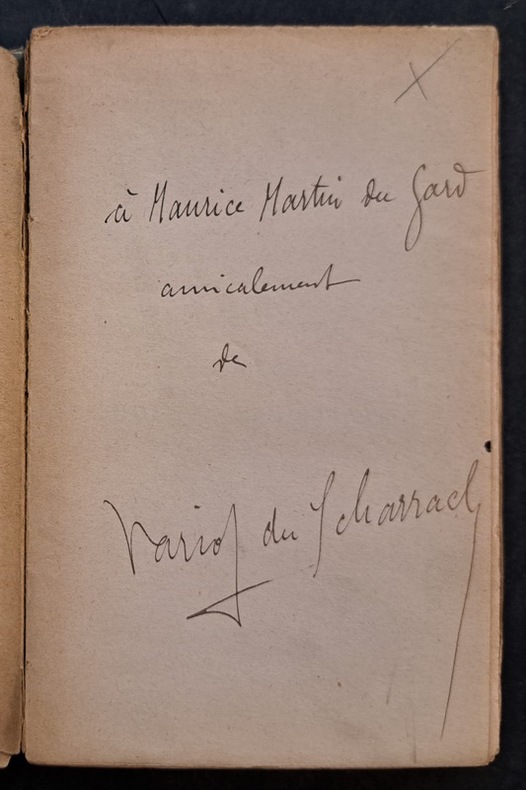 à Maurice Martin du Gard
amicalement
de
Variot du Scharrach